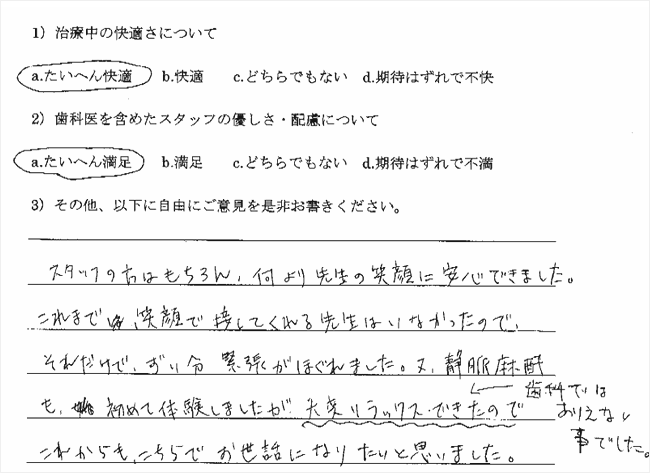 1）治療中の快適さについて
a.たいへん快適 b.快適 c.どちらでもない d.期待はずれで不快
2）歯科医を含めたスタッフの優しさ・配慮について
a.たいへん満足 b.満足 c.どちらでもない d.期待はずれで不満
3）その他、以下に自由にご意見を是非お書きください。
スタッフの方はもちろん、何より先生の笑顔に安心できました。
これまで、笑顔で接してくれる先生はいなかったので、
それだけで、ずい分緊張がほぐれました。又、静脈麻酔
も、初めて体験しましたが、大変リラックスできたので
歯科では
ありえない
事でした。
これからも、こちらでお世話になりたいと思いました。